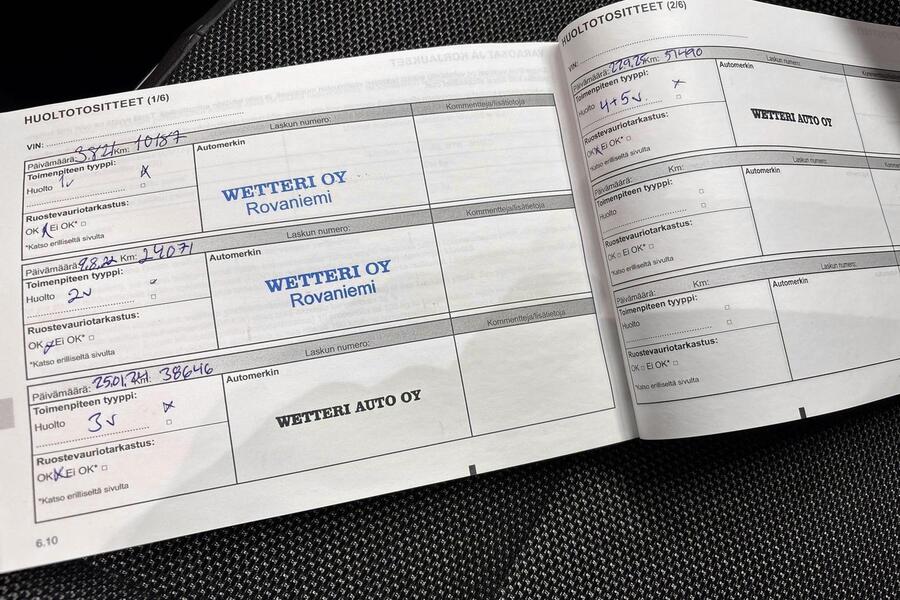 HUOLTOTOSITTEET (1/6)
VIN:
Päivämäärä: 3.8.21 Km: 10187 Laskun numero:
Toimenpiteen tyyppi: Automerkin Kommentteja/lisätietoja
Huolto 1v x
WETTERI OY
Rovaniemi
Ruostevauriotarkastus:
OK x Ei OK*
*Katso erilliseltä sivulta
Päivämäärä: 9.8.22 Km: 24071 Laskun numero:
Toimenpiteen tyyppi: Automerkin Kommentteja/lisätietoja
Huolto 2v
WETTERI OY
Rovaniemi
Ruostevauriotarkastus:
OK Ei OK*
*Katso erilliseltä sivulta
Päivämäärä: 25.01.24 Km: 38646 Laskun numero:
Toimenpiteen tyyppi: Automerkin Kommentteja/lisätietoja
Huolto 3v x
WETTERI AUTO OY
Ruostevauriotarkastus:
OK x Ei OK*
*Katso erilliseltä sivulta
6.10
HUOLTOTOSITTEET (2/6)
VIN:
Päivämäärä: Km: 51490 Laskun numero:
Toimenpiteen tyyppi: Automerkin
Huolto 4+5v. x
WETTERI AUTO OY
Ruostevauriotarkastus:
OK x Ei OK*
*Katso erilliseltä sivulta
Päivämäärä: Km: Laskun numero:
Toimenpiteen tyyppi: Automerkin
Huolto
Ruostevauriotarkastus:
OK Ei OK*
*Katso erilliseltä sivulta
Päivämäärä: Km: Laskun numero:
Toimenpiteen tyyppi: Automerkin
Huolto
Ruostevauriotarkastus:
OK Ei OK*
*Katso erilliseltä sivulta